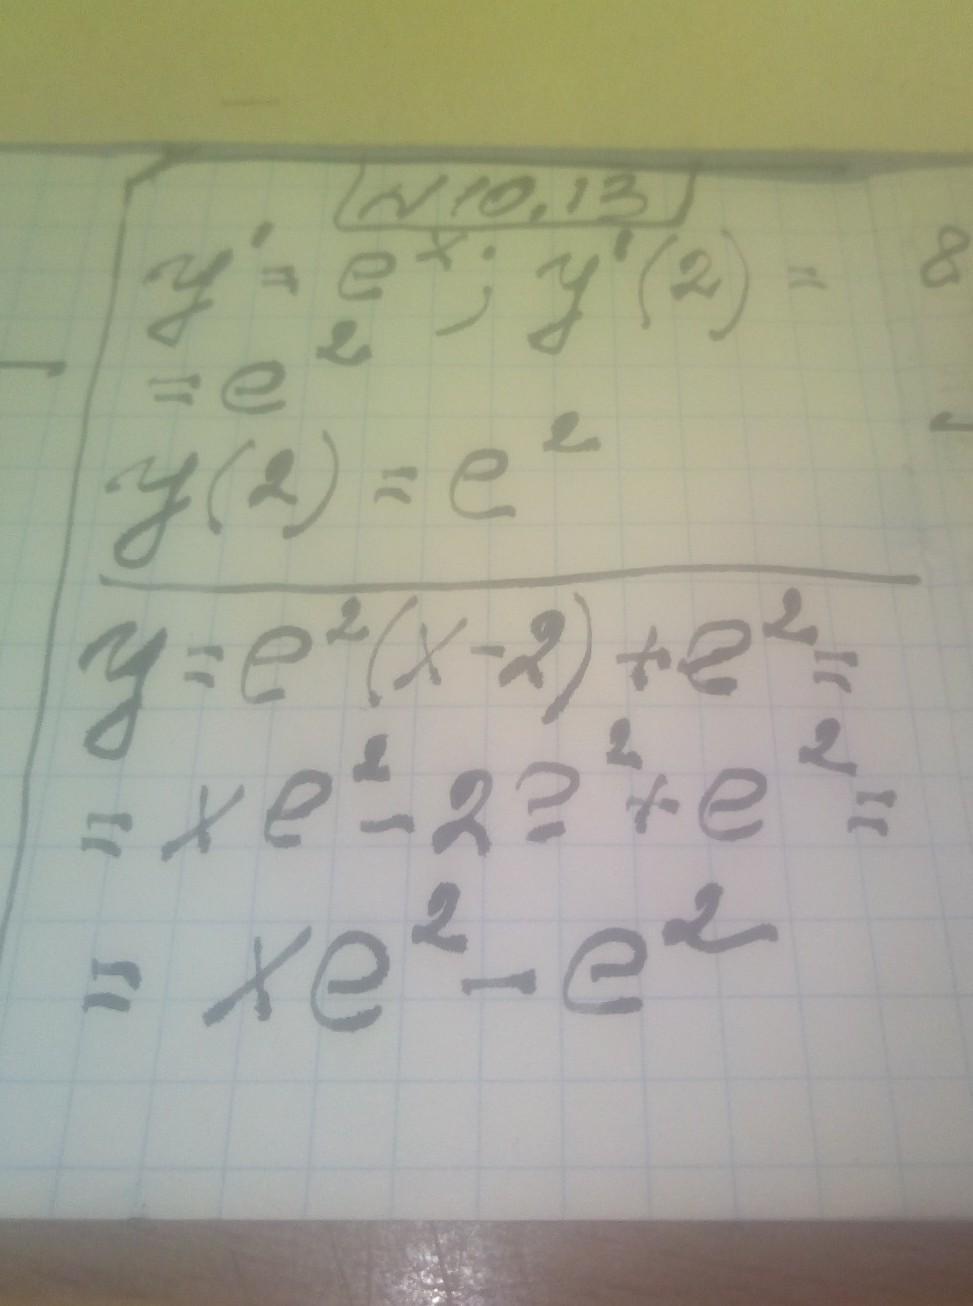 №10.13
y' = eˣ; y'(2) =
= e²
y(2) = e²
y = e²(x-2) + e² =
= xe² - 2e² + e² =
= xe² - e²
8